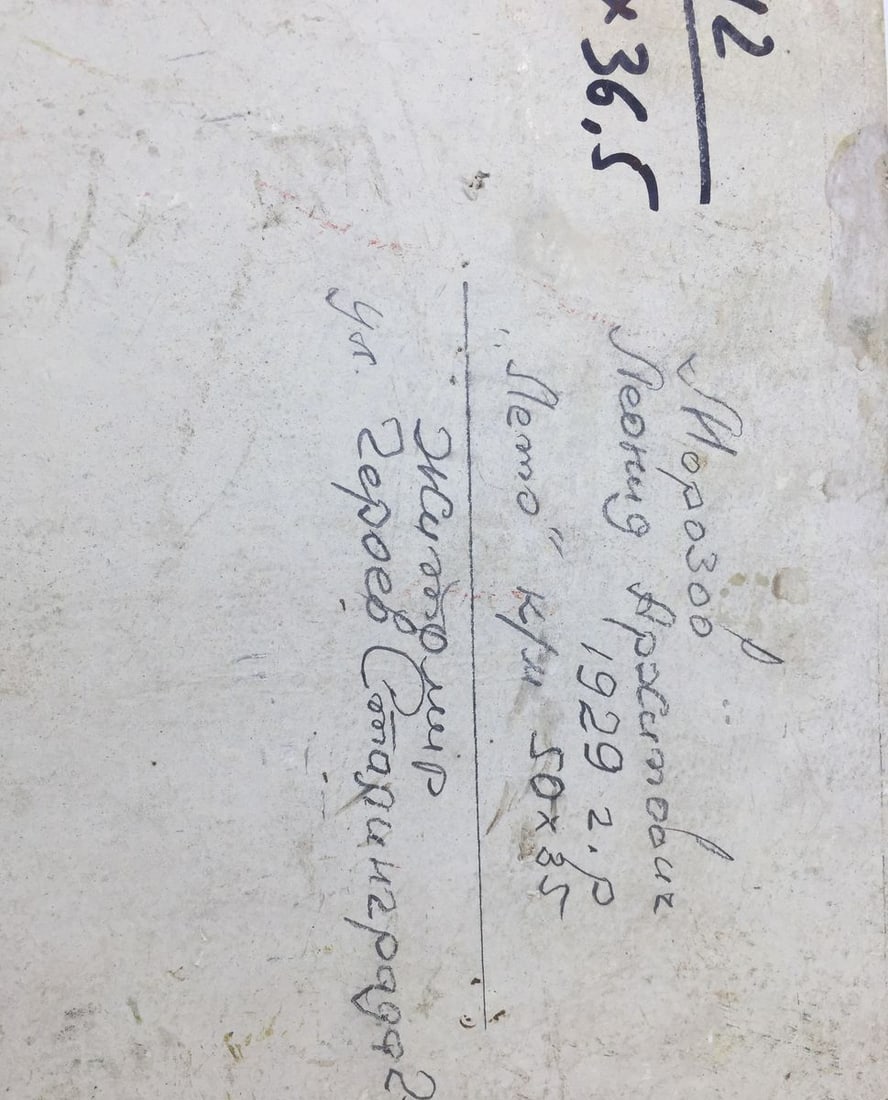 /2
× 36,5
Морозов
Леонид Архипович
1929 г.р
"Лето" к/м 50×35
Житомир
ул. Героев Сталинграда 2